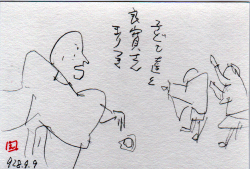 子ども達と
良寛さん
まりつき
928.9.9